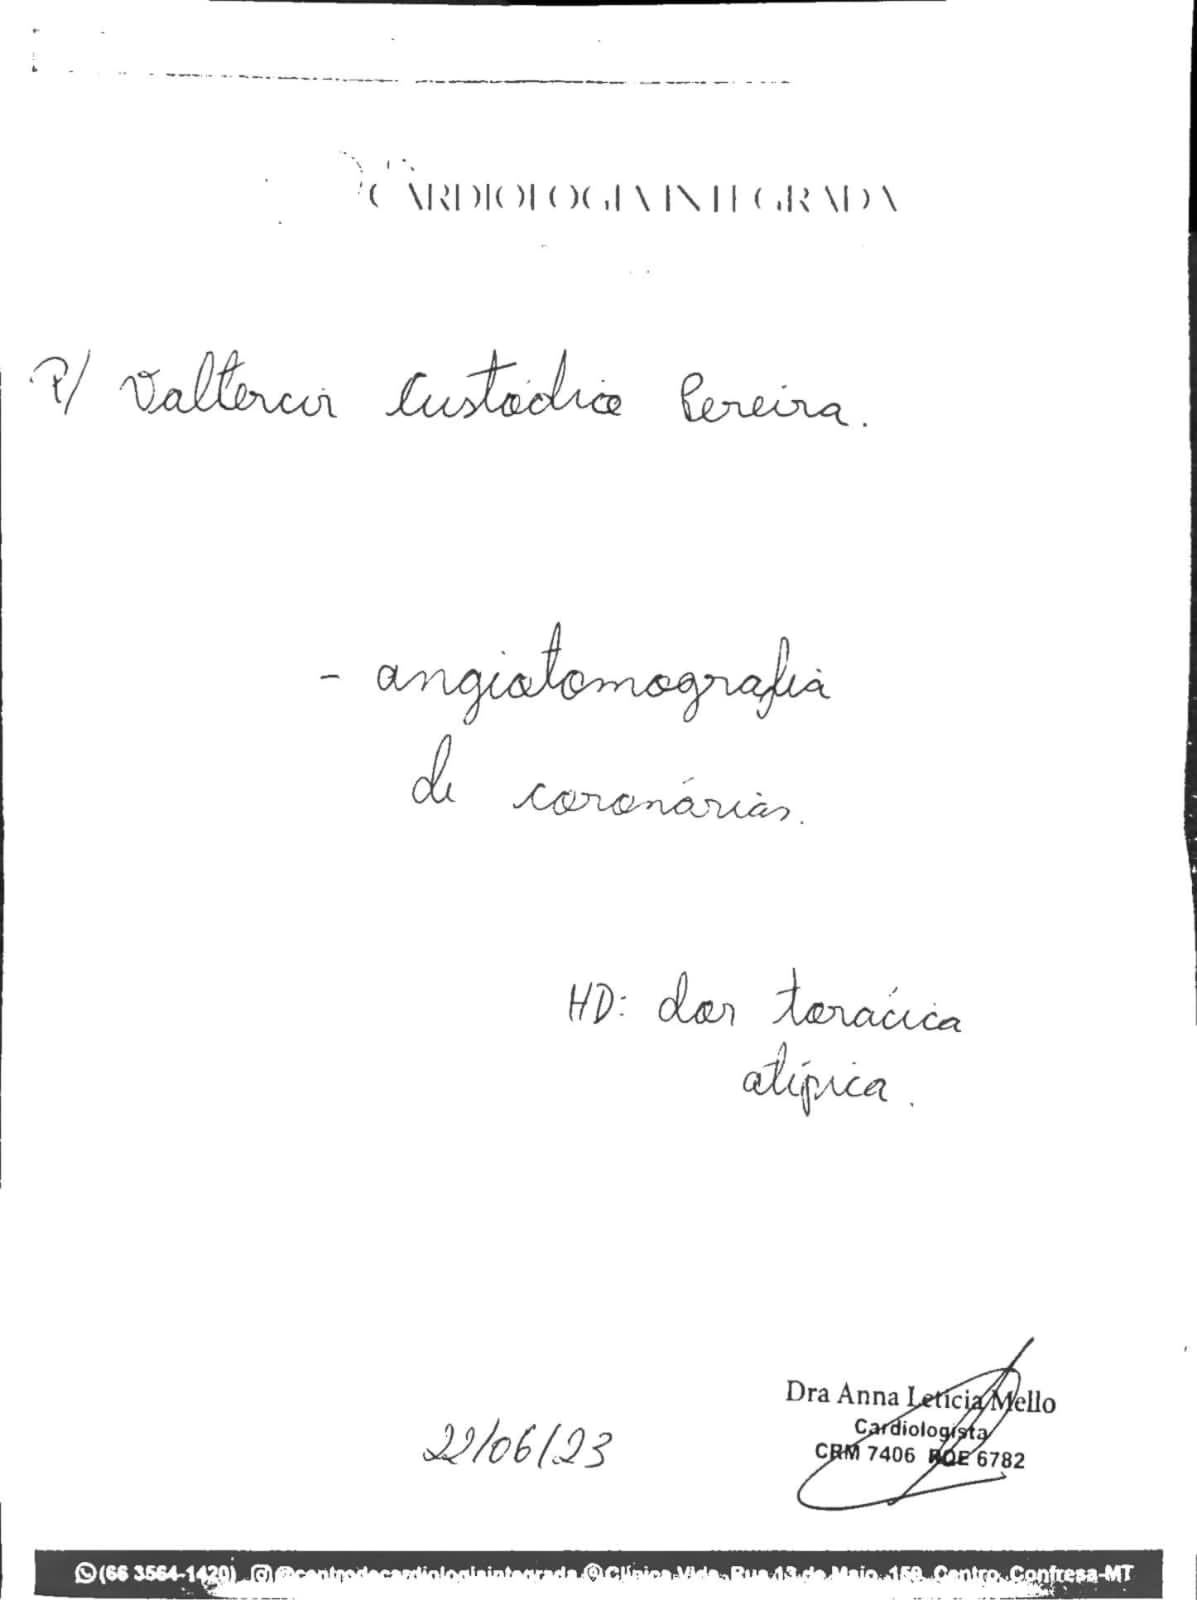 CARDIOLOGIA INTEGRADA
P/ Valtercir Custódio Pereira.
- angiotomografia
de coronárias.
HD: dor torácica
atípica.
Dra Anna Leticia Mello
Cardiologista
CRM 7406 RQE 6782
22/06/23
(66 3564-1420) @centrodecardiologiaintegrada Clínica Vida, Rua 13 de Maio, 159, Centro, Confresa-MT